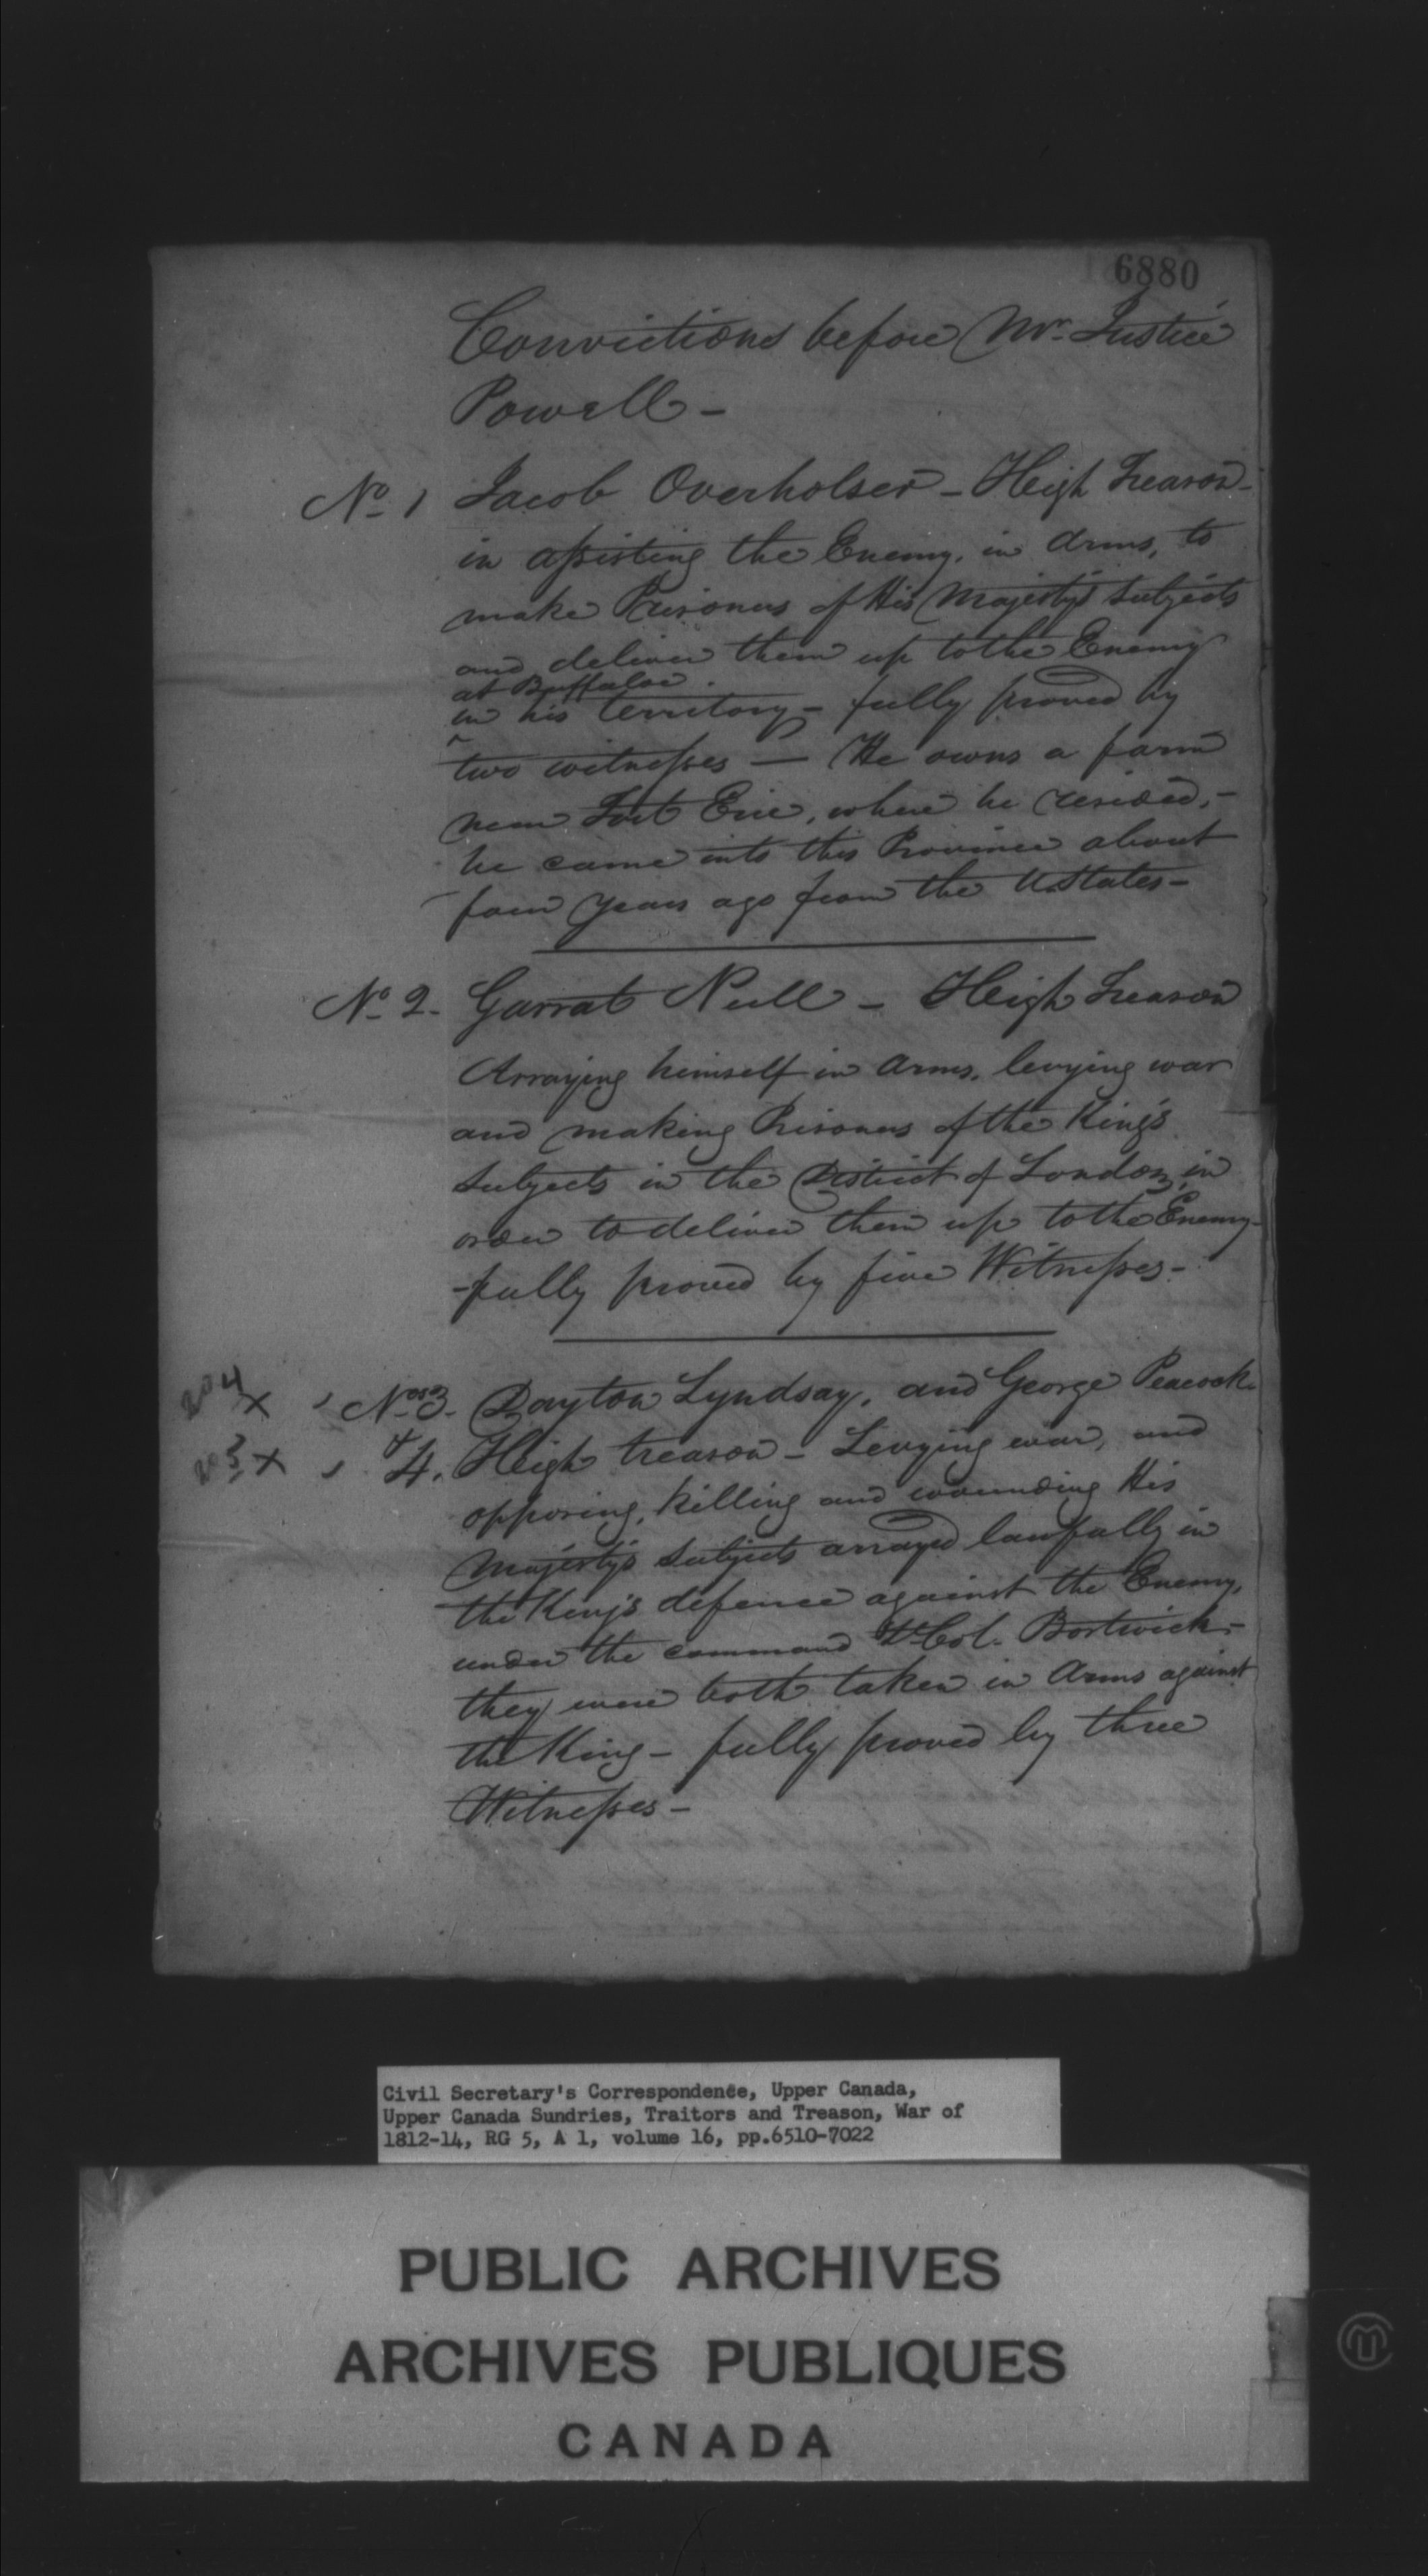 6880
Convictions before Mr. Justice
Powell -
No. 1 Jacob Overholser - High Treason -
in assisting the Enemy, in Arms, to
make Prisoners of His Majesty's Subjects
and deliver them up to the Enemy
at Buffaloe
in his territory - fully proved by
two witnesses - He owns a farm
near Fort Erie, where he resided, -
he came into this Province about
four years ago from the U. States -
No. 2. Garrat Neill - High Treason
Arraying himself in Arms, levying war
and making Prisoners of the King's
Subjects in the District of London, in
order to deliver them up to the Enemy -
- fully proved by five Witnesses -
204 x Nos. 3. Dayton Lyndsay, and George Peacock
203 x & 4. High treason - Levying war, and
opposing, killing and wounding His
Majesty's Subjects arrayed lawfully in
the King's defence against the Enemy,
under the command Lt. Col. Bostwick -
they were both taken in Arms against
the King - fully proved by three
Witnesses -
Civil Secretary's Correspondence, Upper Canada,
Upper Canada Sundries, Traitors and Treason, War of
1812-14, RG 5, A 1, volume 16, pp.6510-7022
PUBLIC ARCHIVES
ARCHIVES PUBLIQUES
CANADA